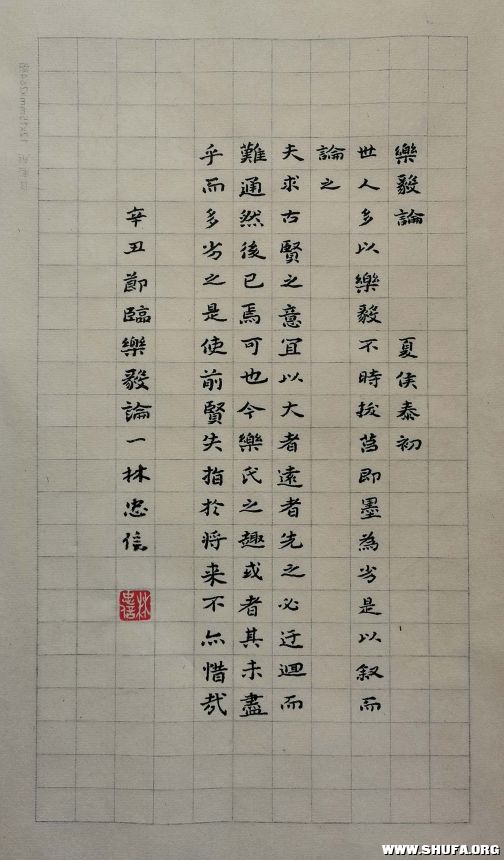 樂毅論 夏侯泰初
世人多以樂毅不時拔莒即墨為劣是以叙而
論之
夫求古賢之意宜以大者遠者先之必迂迴而
難通然後已焉可也今樂氏之趣或者其未盡
乎而多劣之是使前賢失指於将来不亦惜哉
辛丑節臨樂毅論一林忠信
林忠信
WWW.SHUFA.ORG